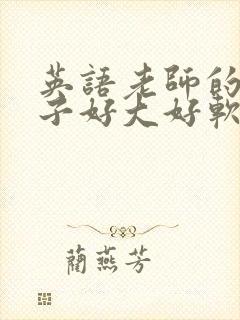 英語老師的
子好大好軟
藺燕芳